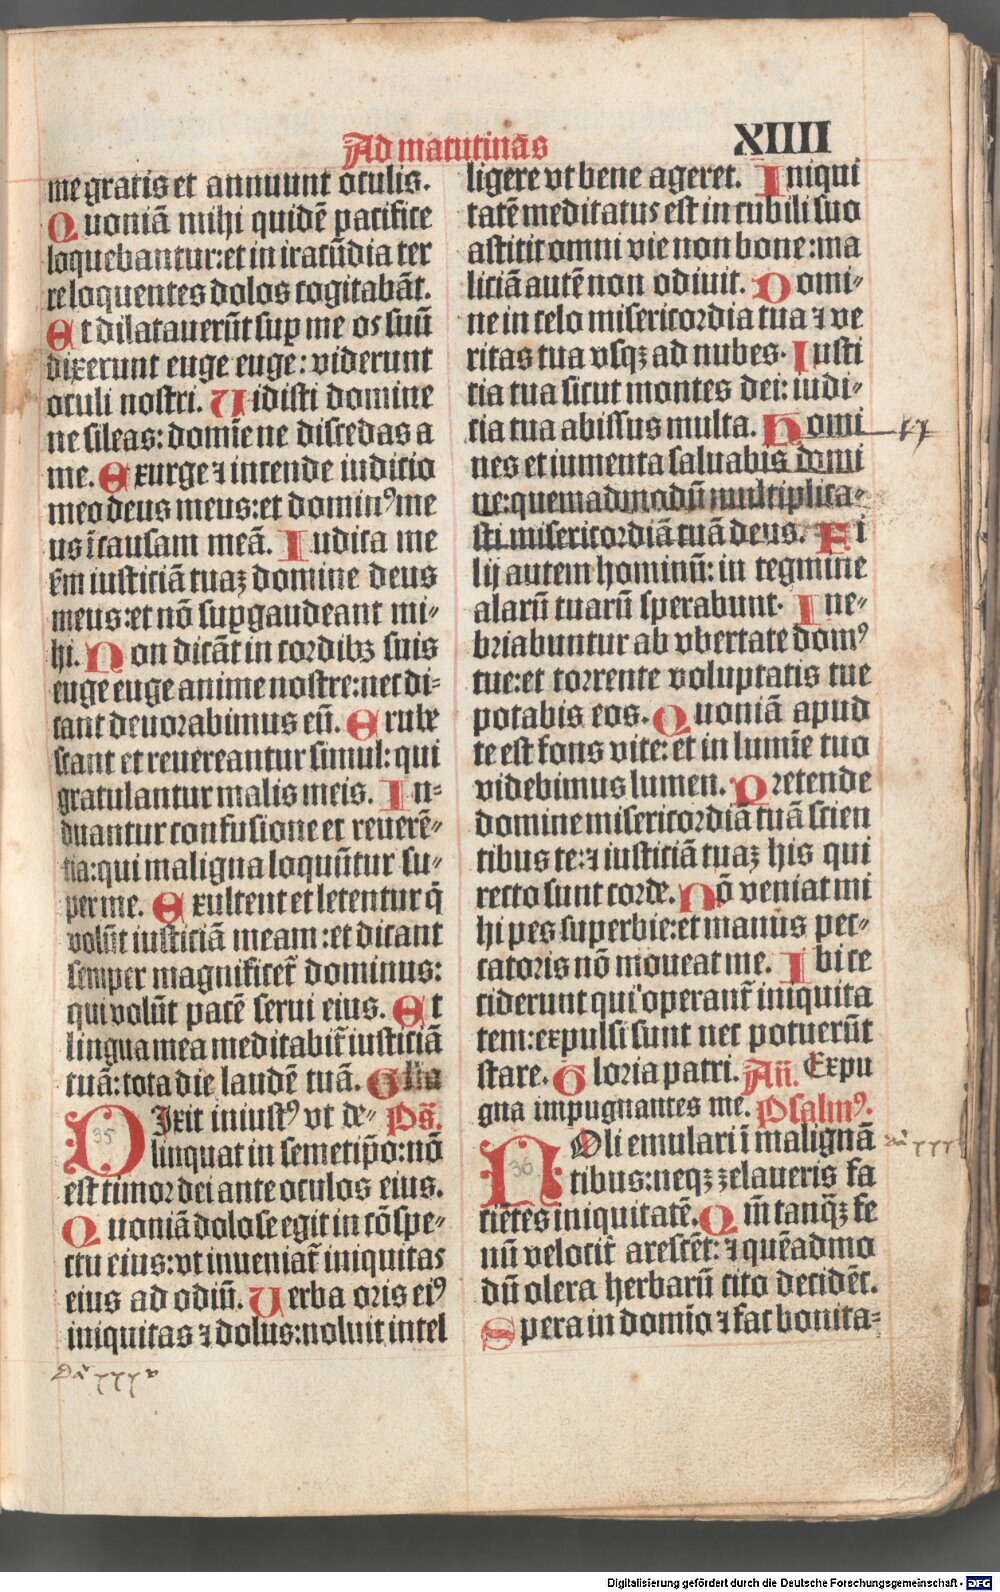 Ad matutinas
XIIII
me gratis et annuunt oculis.
Quoniā mihi quidē pacifice
loquebantur:et in iracūdia ter
re loquentes dolos cogitabāt.
Et dilatauerūt sup̱ me os suū
dixerunt euge euge: viderunt
oculi nostri. Uidisti domine
ne sileas: domīe ne discedas a
me. Exurge ⁊ intende iudicio
meo deus meus:et dominꝰ me
us ī causam meā. Iudica me
ẜm iusticiā tuaꝫ domine deus
meus:et nō sup̱gaudeant mi⸗
hi. Non dicāt in cordibꝫ suis
euge euge anime nostre:nec di⸗
cant deuorabimus eū. Erube
scant et reuereantur simul: qui
gratulantur malis meis. In⸗
duantur confusione et reuerē⸗
tia:qui maligna loquūtur su⸗
per me. Exultent et letentur q̄
volūt iusticiā meam:et dicant
semper magnificet᷑ dominus:
qui volūt pacē serui eius. Et
lingua mea meditabit᷑ iusticiā
tuā: tota die laudē tuā. Glia
DIxit iniustꝰ vt de⸗ Ps̄.
35
linquat in semetip̄o:nō
est timor dei ante oculos eius.
Quoniā dolose egit in cōspe⸗
ctu eius:vt inueniat᷑ iniquitas
eius ad odiū. Uerba oris eiꝰ
iniquitas ⁊ dolus:noluit intel
ligere vt bene ageret. Iniqui
tatē meditatus est in cubili suo
astitit omni vie non bone:ma
liciā autē non odiuit. Domi⸗
ne in celo misericordia tua ⁊ ve
ritas tua vsqꝫ ad nubes. Iusti
cia tua sicut montes dei: iudi⸗
cia tua abissus multa. Homi
nes et iumenta saluabis domi
ne:quemadmodū multiplica⸗
sti misericordiā tuā deus. Fi
lij autem hominū: in tegmine
alarū tuarū sperabunt. Ine⸗
briabuntur ab vbertate domꝰ
tue:et torrente voluptatis tue
potabis eos. Quoniā apud
te est fons vite: et in lumīe tuo
videbimus lumen. Pretende
domine misericordiā tuā scien
tibus te:⁊ iusticiā tuaꝫ his qui
recto sunt corde. Nō veniat mi
hi pes superbie:et manus pec⸗
catoris nō moueat me. Ibi ce
ciderunt qui operant᷑ iniquita
tem:expulsi sunt nec potuerūt
stare. Gloria patri. Añ. Expu
gna impugnantes me. Psalmꝰ.
NOli emulari ī malignā
36
tibus:neqꝫ zelaueris fa
ciētes iniquitatē. Qm̄ tanq̄ꝫ fe
nū velocit᷑ arescēt: ⁊ quēadmo
dū olera herbarū cito decidēt.
Spera in domīo ⁊ fac bonita⸗
Digitalisierung gefördert durch die Deutsche Forschungsgemeinschaft - DFG